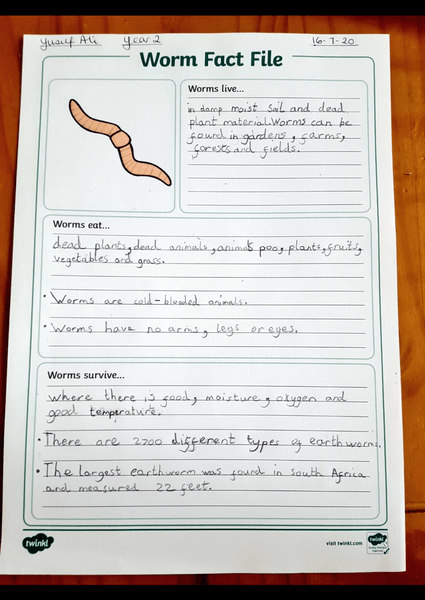 Yusuf Ali Year 2 16-7-20
Worm Fact File
Worms live...
in damp moist soil and dead
plant material. Worms can be
found in gardens, farms,
forests and fields.
Worms eat...
dead plants, dead animals, animal poo, plants, fruits,
vegetables and grass.
• Worms are cold-blooded animals.
• Worms have no arms, legs or eyes.
Worms survive...
where there is food, moisture, oxygen and
good temperature.
• There are 2700 different types of earthworms.
• The largest earthworm was found in South Africa
and measured 22 feet.
twinkl
visit twinkl.com
twinkl